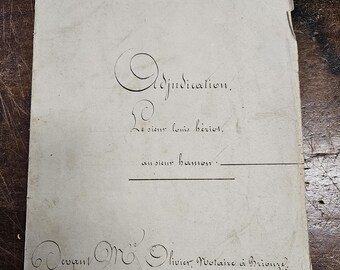 Adjudication.
Le sieur louis hériot,
au sieur hamon.
Devant Me Olivier, Notaire à Briouze,